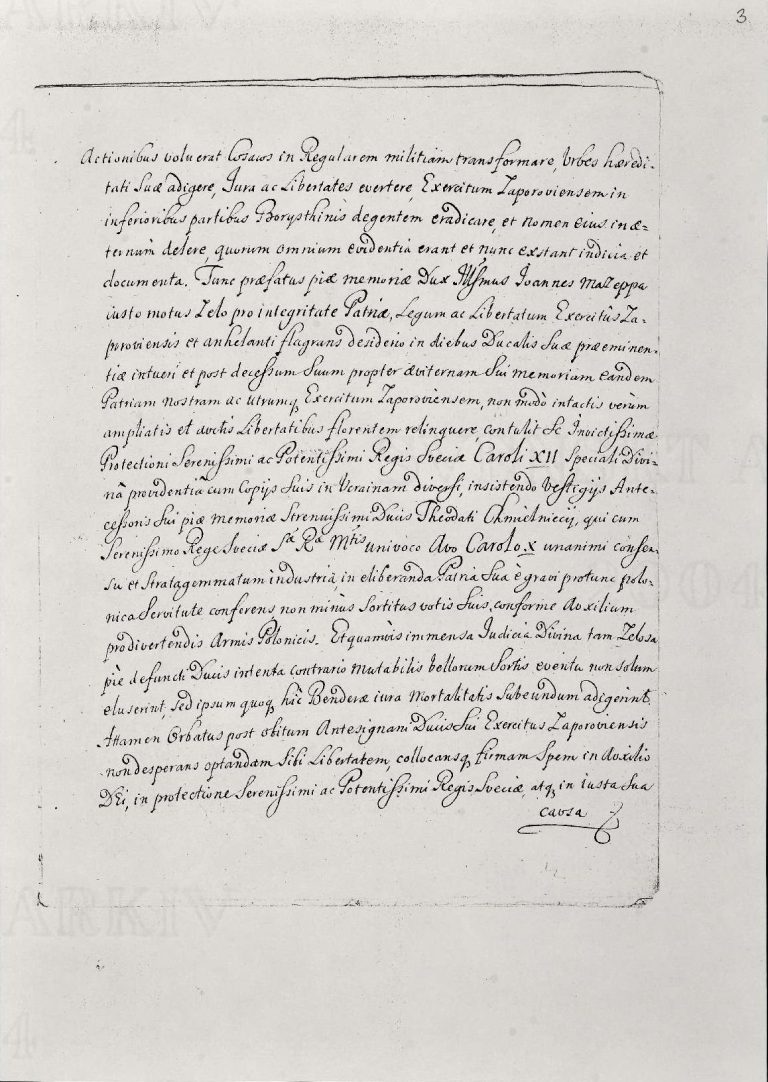 3
Actionibus voluerat Cosacos in Regularem militiam transformare, Urbes hæredi-
tati suæ adigere, Jura ac Libertates evertere, Exercitum Zaporoviensem in
inferioribus partibus Borysthinis degentem eradicare, et nomen eius in æ-
ternum delere, quorum omnium evidentia erant et nunc exstant indicia et
documenta. Tunc præfatus piæ memoriæ Dux Illsmus Ioannes Mazeppa
iusto motus Zelo pro integritate Patriæ, Legum ac Libertatum Exercitûs Za-
poroviensis et anhelanti flagrans desiderio in diebus Ducalis Suæ præeminen-
tiæ intueri et post decessum Suum propter æviternam Sui memoriam eandem
Patriam nostram ac utrumq Exercitum Zaporoviensem, non modò intactis verùm
ampliatis et auctis Libertatibus florentem relinquere contulit Se Invictissimæ
Protectioni Serenissimi ac Potentissimi Regis Sveciæ Caroli XII Speciali Divi-
nâ providentiâ cum Copijs Suis in Ucrainam diversi, insistendo Vestigijs Ante-
cessoris Sui piæ memoriæ Strenuissimi Ducis Theodati Chmielniccij, qui cum
Serenissimo Rege Sveciæ Sæ Ræ Mtis univoco Avo Carolo X unanimi consen-
su et Stratagemmatum industriâ, in eliberanda Patria Sua è gravi protunc polo-
nica Servitute conferens non minùs Sortitus votis Suis, conforme Auxilium
pro divertendis Armis Polonicis. Et quamvis immensa Iudicia Divina tam Zelosa
piè defuncti Ducis intenta contrario Mutabilis bellorum Sortis eventu non solum
eluserint, Sed ipsum quoq hîc Benderæ iura Mortalitatis Subeundum adigerint.
Attamen Orbatus post obitum Antesignani Ducis Sui Exercitus Zaporoviensis
non desperans optandam Sibi Libertatem, collocansq firmam Spem in Auxilio
DEi, in protectione Serenissimi ac Potentissimi Regis Sveciæ, atq in iusta Sua
causa